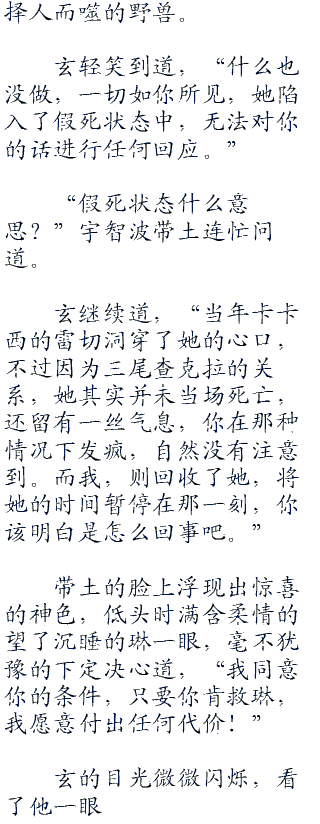 择人而噬的野兽。
玄轻笑到道，“什么也
没做，一切如你所见，她陷
入了假死状态中，无法对你
的话进行任何回应。”
“假死状态什么意
思？”宇智波带土连忙问
道。
玄继续道，“当年卡卡
西的雷切洞穿了她的心口，
不过因为三尾查克拉的关
系，她其实并未当场死亡，
还留有一丝气息，你在那种
情况下发疯，自然没有注意
到。而我，则回收了她，将
她的时间暂停在那一刻，你
该明白是怎么回事吧。”
带土的脸上浮现出惊喜
的神色，低头时满含柔情的
望了沉睡的琳一眼，毫不犹
豫的下定决心道，“我同意
你的条件，只要你肯救琳，
我愿意付出任何代价！”
玄的目光微微闪烁，看
了他一眼